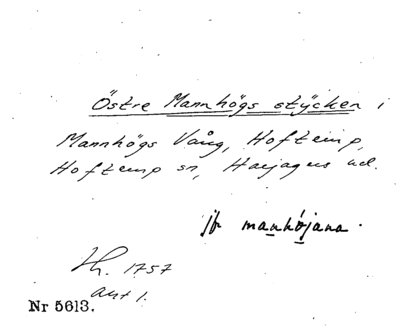 Östre Mannhögs stÿcken i
Mannhögs Vång, Hofterup,
Hofterup sn, Harjagers hd.
jfr manhøjana.
Th. 1757
akt 1.
Nr 5613.